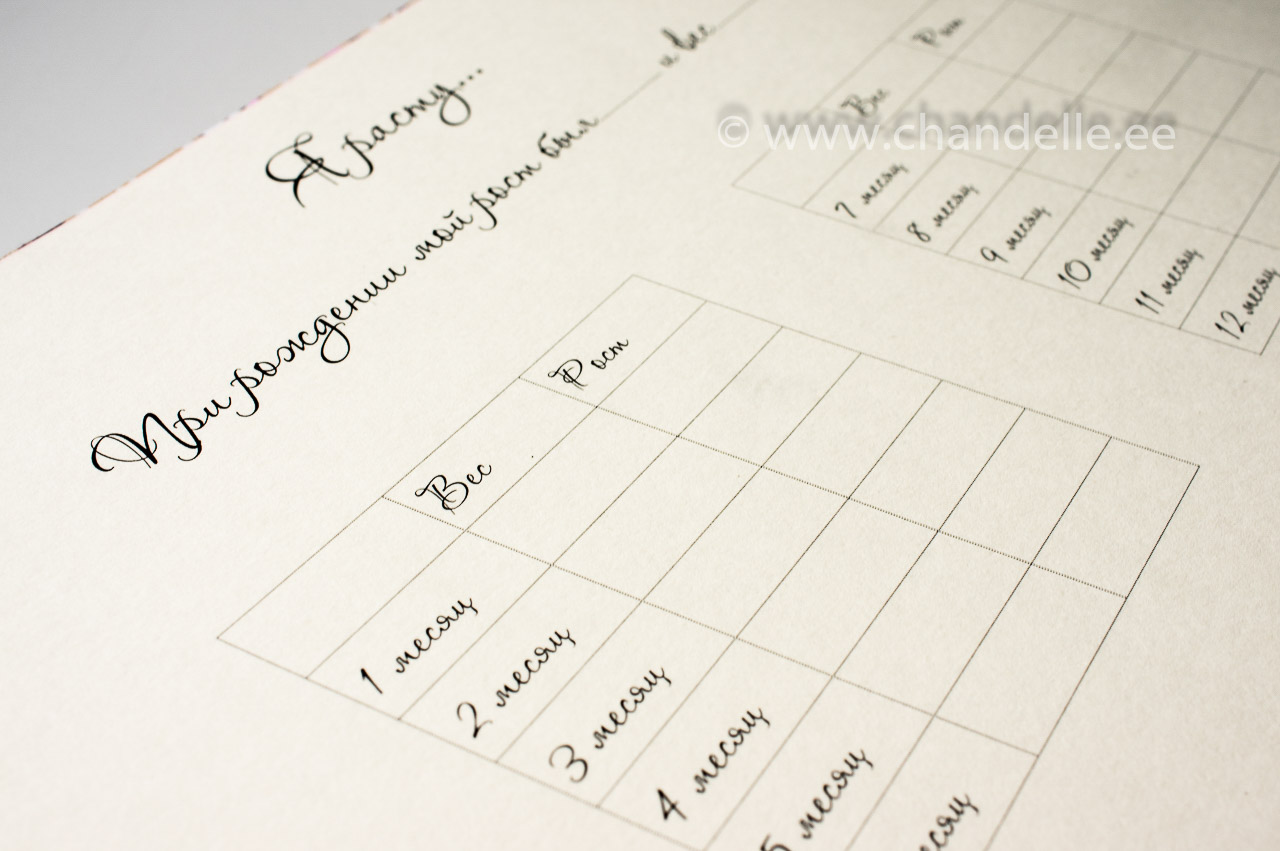 Я расту...
При рождении мой рост был и вес
Вес Рост
1 месяц
2 месяц
3 месяц
4 месяц
5 месяц
Вес Рост
7 месяц
8 месяц
9 месяц
10 месяц
11 месяц
12 месяц
© www.chandelle.ee